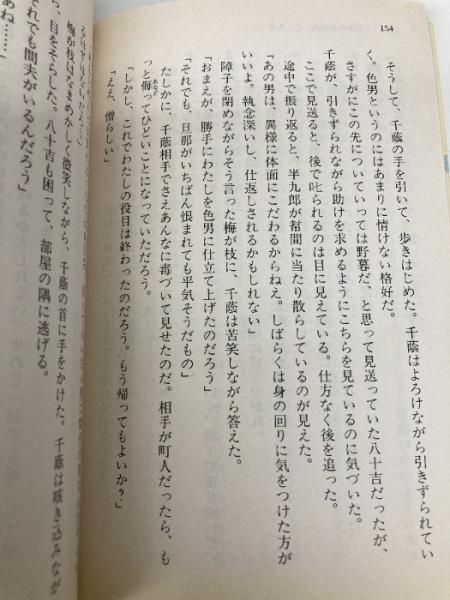 154
そうして、千蔭の手を引いて、歩きはじめた。千蔭はよろけながら引きずられてい
く。色男というのにはあまりに情けない格好だ。
さすがにこの先についていっては野暮だ、と思って見送っていた八十吉だったが、
千蔭が、引きずられながら助けを求めるようにこちらを見ているのに気づいてしまった。
ここで見送ると、後で叱られるのは目に見えている。仕方なく後を追った。
途中で振り返ると、半九郎が幇間に当たり散らしているのが見えた。
「あの男は、異様に体面にこだわるからねえ。しばらくは身の回りに気をつけた方が
いいよ。執念深いし、仕返しされるかもしれない」
障子を閉めながらそう言った梅が枝に、千蔭は苦笑しながら答えた。
「おまえが、勝手にわたしを色男に仕立て上げたのだろう」
「それでも、旦那がいちばん恨まれても平気そうだもの」
たしかに、千蔭相手でさえあんなに毒づいて見せたのだ。相手が町人だったら、も
っと侮ってひどいことになっていただろう。
あなど
「しかし、これでわたしの役目は終わったのだろう。もう帰ってもよいか？」
「ええ、憎らしい」
梅が枝はなまめかしく微笑しながら、千蔭の首に手をかけた。千蔭は咳き込みなが
ら、目をそらした。八十吉も困って、部屋の隅に逃げる。
それでも間夫がいるんだろう」
あね……」